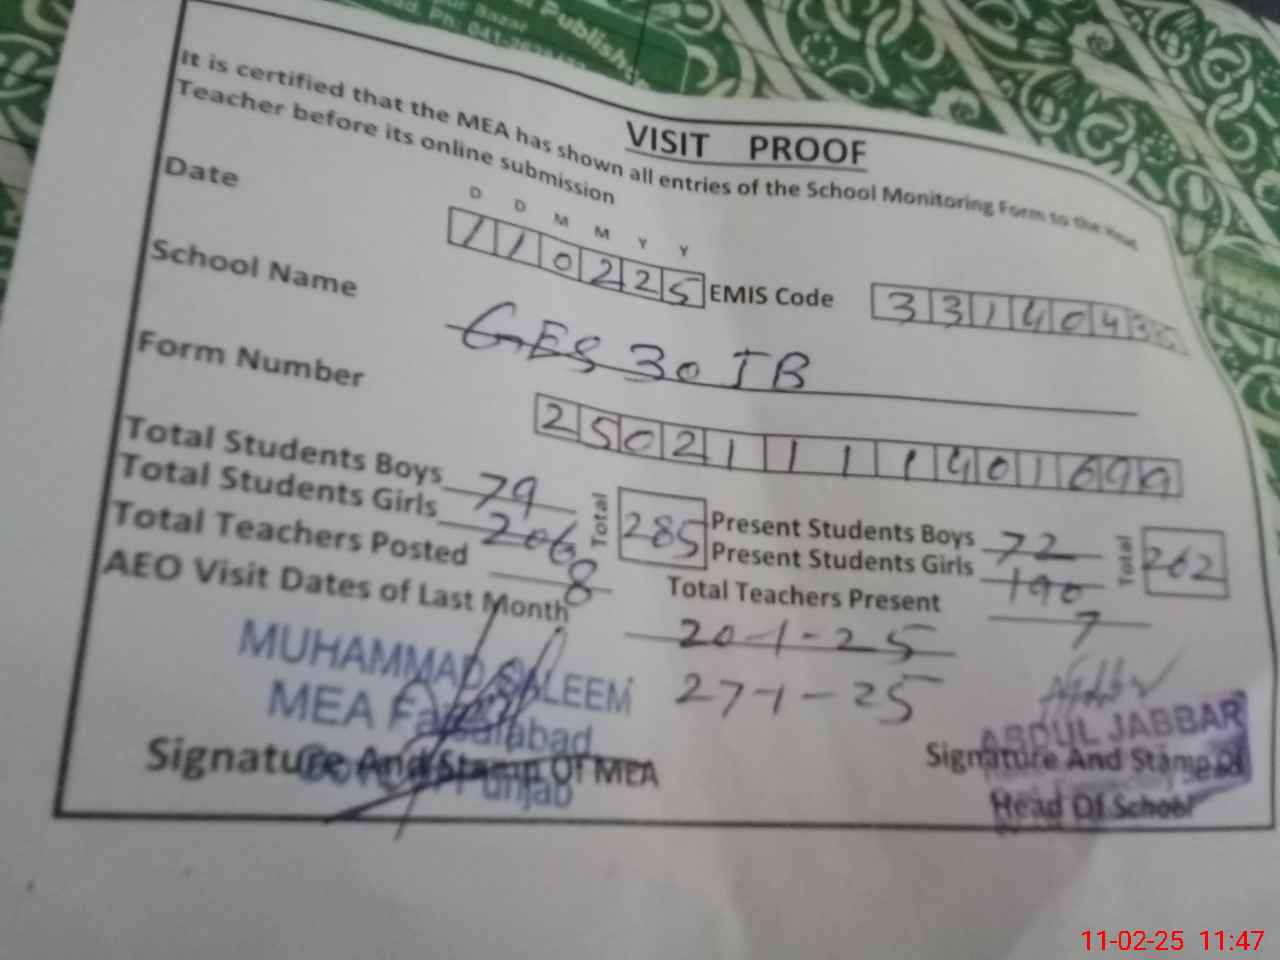 Publish
pur Bazar
ad. Ph: 041-26
VISIT PROOF
It is certified that the MEA has shown all entries of the School Monitoring Form to the Head
Teacher before its online submission
D D M M Y Y
Date 110225 EMIS Code 33140435
School Name GES 30 JB
Form Number 25021111401699
Total Students Boys 79 Total 285 Present Students Boys 72 Total 262
Total Students Girls 206 Present Students Girls 190
Total Teachers Posted 8 Total Teachers Present 7
AEO Visit Dates of Last Month 20-1-25
27-1-25
MUHAMMAD SALEEM
MEA Faisalabad
Govt. Of Punjab
Signature And Stamp Of MEA
ABDUL JABBAR
Signature And Stamp Of
Head Of School
11-02-25 11:47